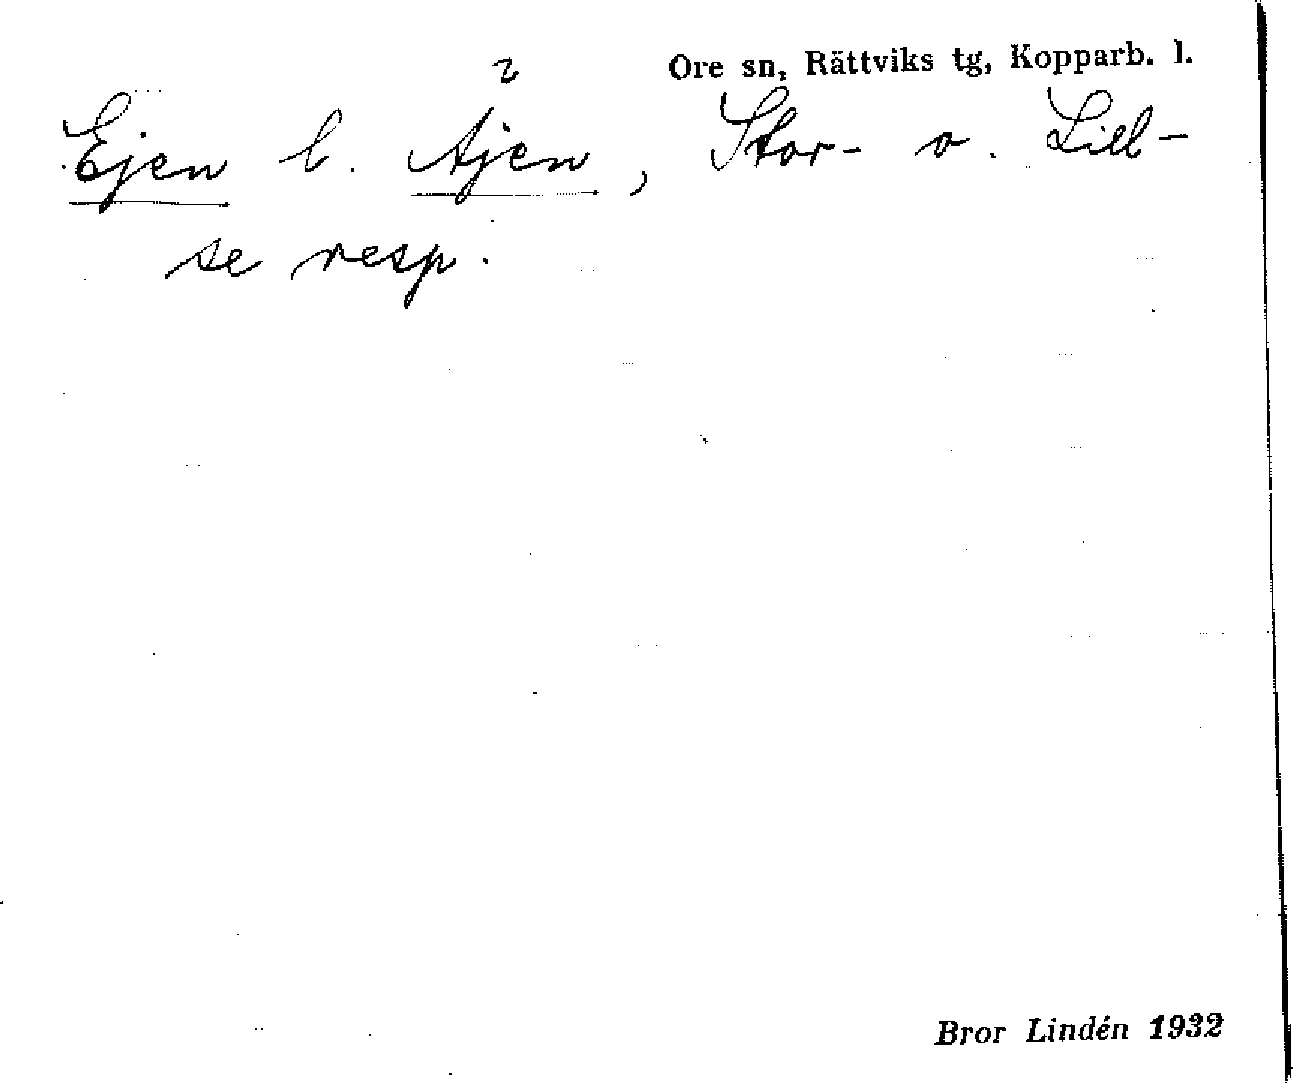 Ore sn, Rättviks tg, Kopparb. l.
Ejen l. Äjen, Stor- o. Lill-
se resp.
Bror Lindén 1932